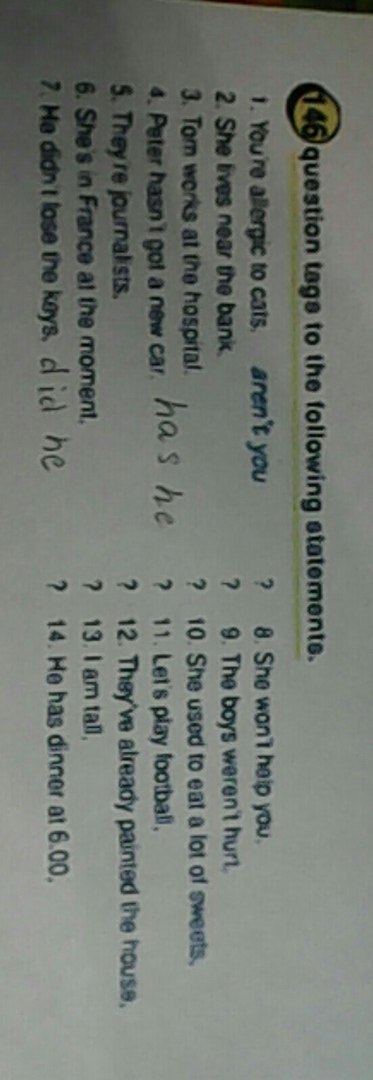 146 question tags to the following statements.
1. You're allergic to cats, aren't you ?
2. She lives near the bank, ?
3. Tom works at the hospital, ?
4. Peter hasn't got a new car, has he ?
5. They're journalists, ?
6. She's in France at the moment, ?
7. He didn't lose the keys, did he ?
8. She won't help you,
9. The boys weren't hurt,
10. She used to eat a lot of sweets,
11. Let's play football,
12. They've already painted the house,
13. I am tall,
14. He has dinner at 6.00,